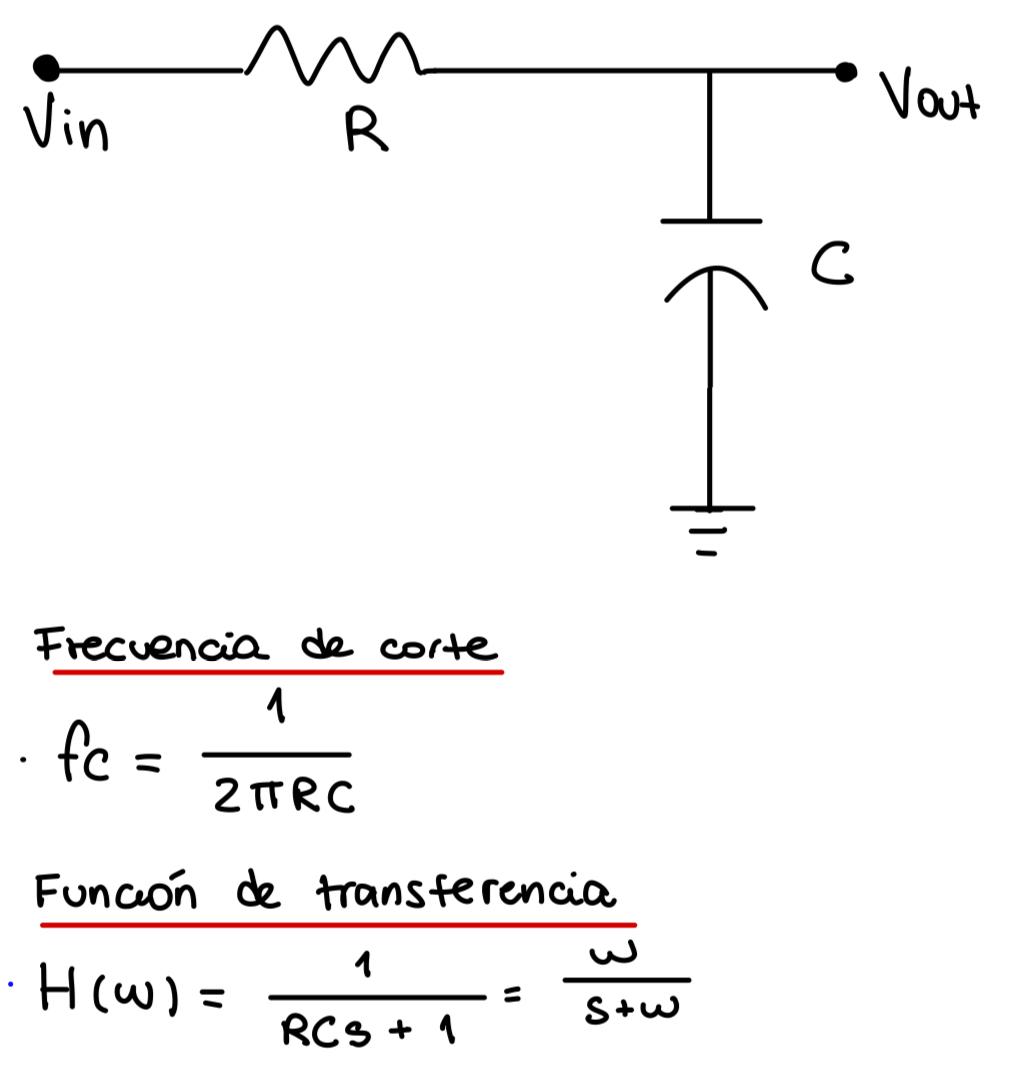 Vin R Vout
C
Frecuencia de corte
· fc = 1 / 2πRC
Función de transferencia
· H(ω) = 1 / RCs + 1 = ω / s+ω